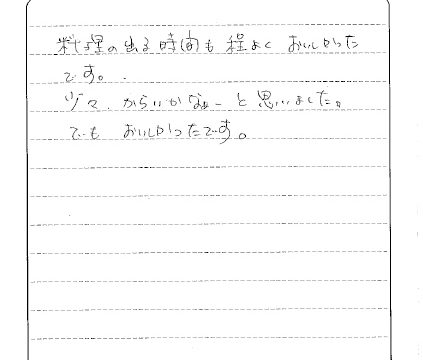 料理の出る時間も程よく おいしかった
です。
少々 からいかなぁーと思いました。
でも おいしかったです。